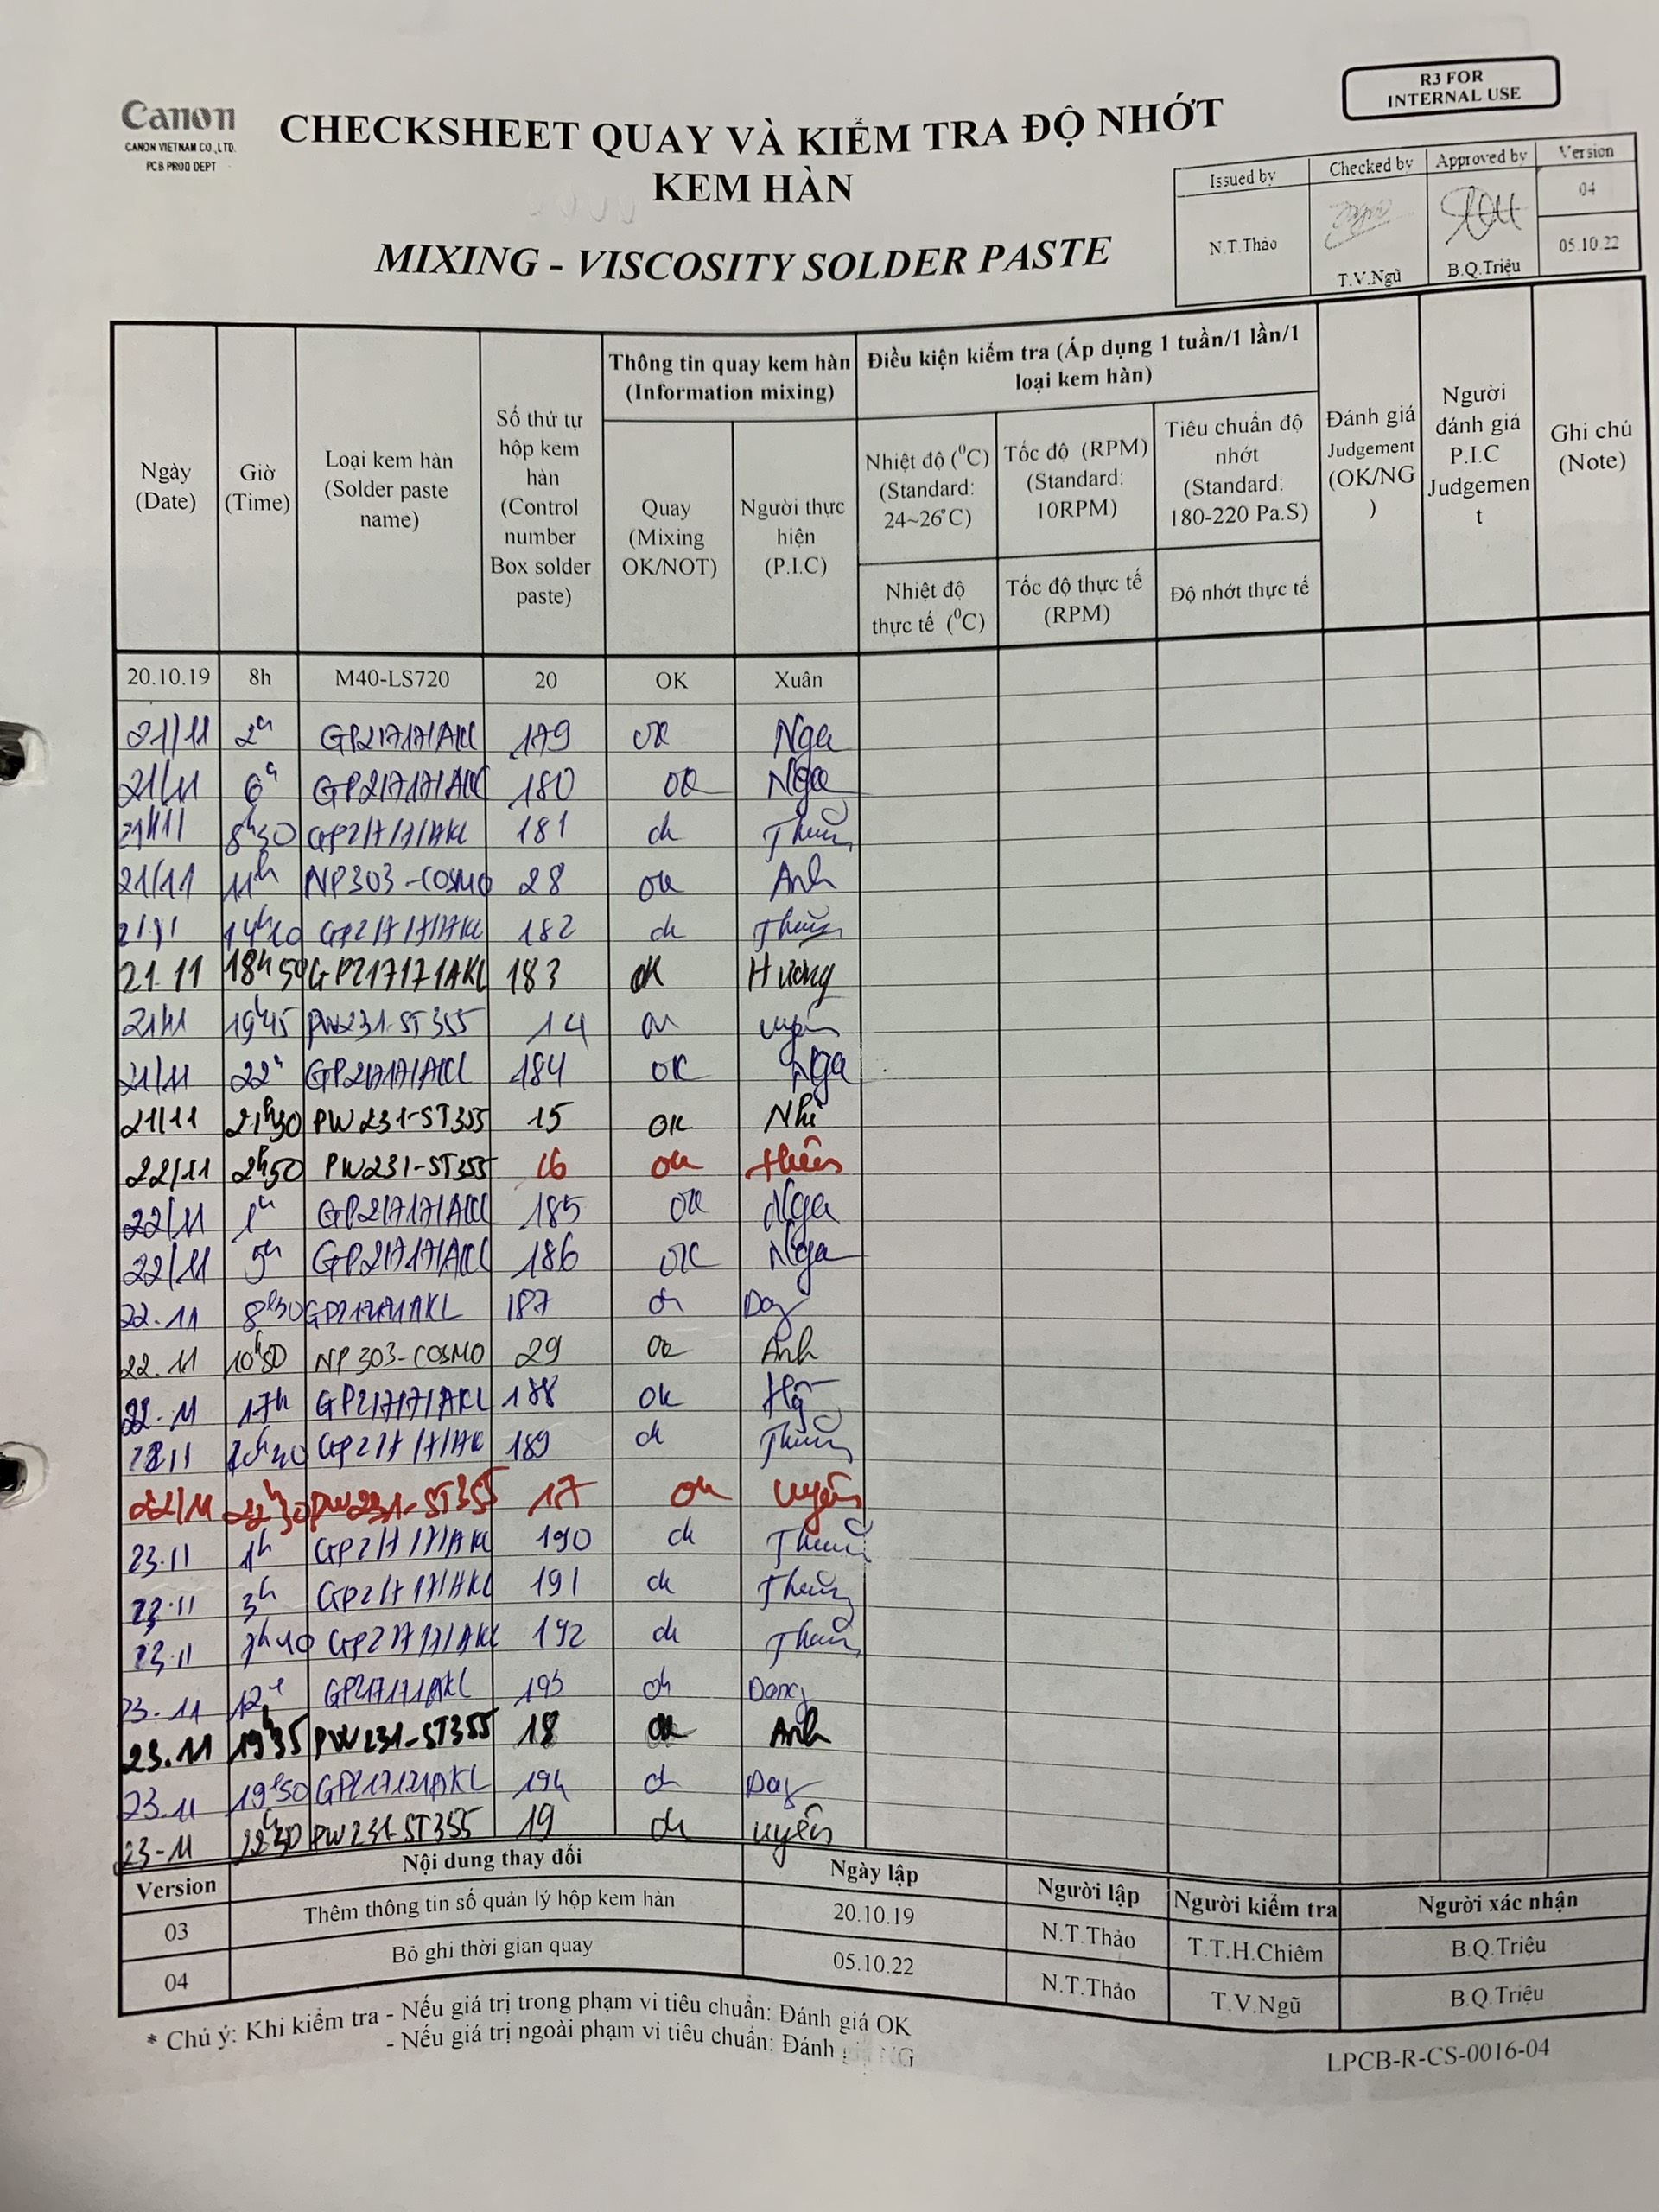 Canon
CANON VIETNAM CO.,LTD.
PCB PROD DEPT
R3 FOR
INTERNAL USE
CHECKSHEET QUAY VÀ KIỂM TRA ĐỘ NHỚT
KEM HÀN
MIXING - VISCOSITY SOLDER PASTE
Issued by Checked by Approved by Version
N.T.Thảo T.V.Ngũ B.Q.Triệu 04
05.10.22
Ngày (Date)
Giờ (Time)
Loại kem hàn (Solder paste name)
Số thứ tự hộp kem hàn (Control number Box solder paste)
Thông tin quay kem hàn (Information mixing)
Quay (Mixing OK/NOT)
Người thực hiện (P.I.C)
Điều kiện kiểm tra (Áp dụng 1 tuần/1 lần/1 loại kem hàn)
Nhiệt độ (⁰C) (Standard: 24~26°C)
Tốc độ (RPM) (Standard: 10RPM)
Tiêu chuẩn độ nhớt (Standard: 180-220 Pa.S)
Nhiệt độ thực tế (⁰C)
Tốc độ thực tế (RPM)
Độ nhớt thực tế
Đánh giá Judgement (OK/NG)
Người đánh giá P.I.C Judgement
Ghi chú (Note)
20.10.19 8h M40-LS720 20 OK Xuân
21/11 2h GP217171AKL 179 OK Nga
21/11 6h GP217171AKL 180 OK Nga
21/11 8h30 GP217171AKL 181 ok
21/11 11h NP303-COSMO 28 ok Anh
21/11 GP217171AKL 182 ok
21.11 18h50 GP217171AKL 183 OK Hương
21/11 19h45 PW231-ST355 14 ok Uyên
21/11 22h GP217171AKL 184 OK Nga
21/11 21h30 PW231-ST355 15 OK Nhi
22/11 2h50 PW231-ST355 16 ok
22/11 1h GP217171AKL 185 OK Nga
22/11 5h GP217171AKL 186 OK Nga
22.11 8h30 GP217171AKL 187 ok
22.11 10h50 NP303-COSMO 29 ok Anh
22.11 17h GP217171AKL 188 ok
22.11 GP217171AK 189 ok
22/11 22h30 PW231-ST355 17 ok Uyên
23.11 1h GP217171AKL 190 ok
23.11 3h GP217171AKL 191 ok
23.11 7h40 GP217171AKL 192 ok
23.11 12h GP217171AKL 193 ok Dang
23.11 19h35 PW231-ST355 18 OK Anh
23.11 19h50 GP217171AKL 194 ok
23-11 22h30 PW231-ST355 19 ok Uyên
Version Nội dung thay đổi Ngày lập Người lập Người kiểm tra Người xác nhận
03 Thêm thông tin số quản lý hộp kem hàn 20.10.19 N.T.Thảo T.T.H.Chiêm B.Q.Triệu
04 Bỏ ghi thời gian quay 05.10.22 N.T.Thảo T.V.Ngũ B.Q.Triệu
* Chú ý: Khi kiểm tra - Nếu giá trị trong phạm vi tiêu chuẩn: Đánh giá OK
- Nếu giá trị ngoài phạm vi tiêu chuẩn: Đánh giá NG
LPCB-R-CS-0016-04